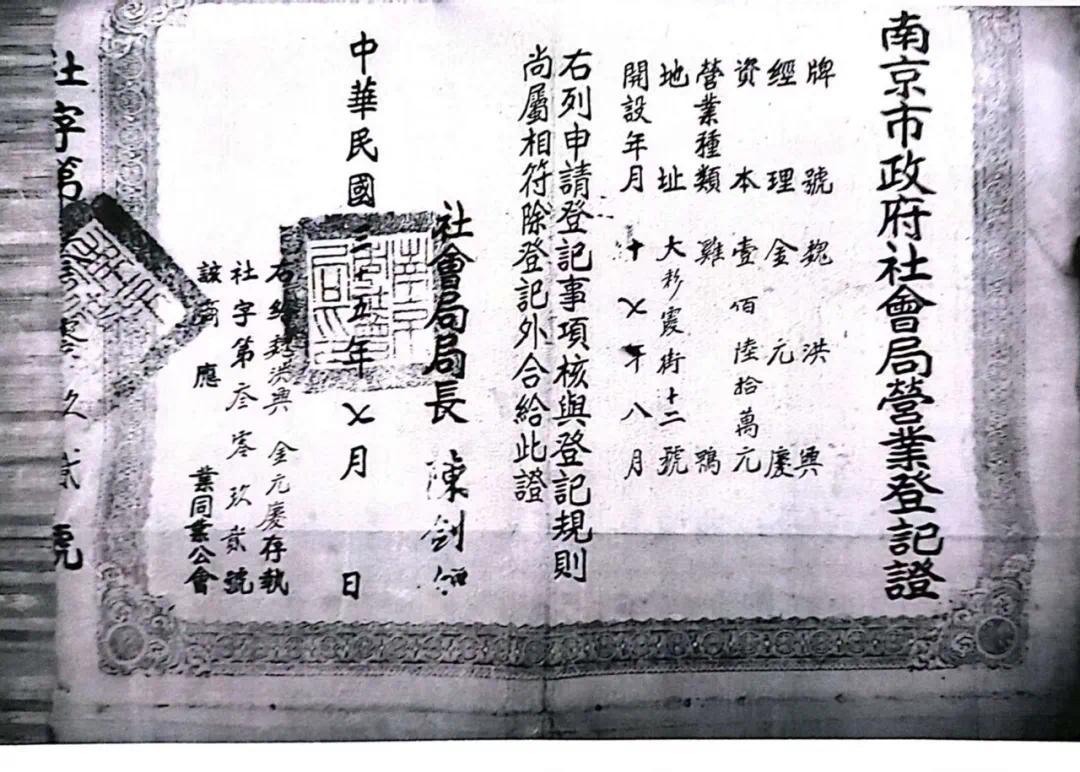 南京市政府社會局營業登記證
牌號 魏洪興
經理 金元慶
資本 壹佰陸拾萬元
營業種類 雞鴨
地址 大彩霞街十二號
開設年月 十乂年八月
右列申請登記事項核與登記規則
尚屬相符除登記外合給此證
社會局局長 陳劍
中華民國三十五年乂月 日
右給魏洪興 金元慶存執
社字第叁零玖貳號
該商應 業同業公會
社字第 玖貳號